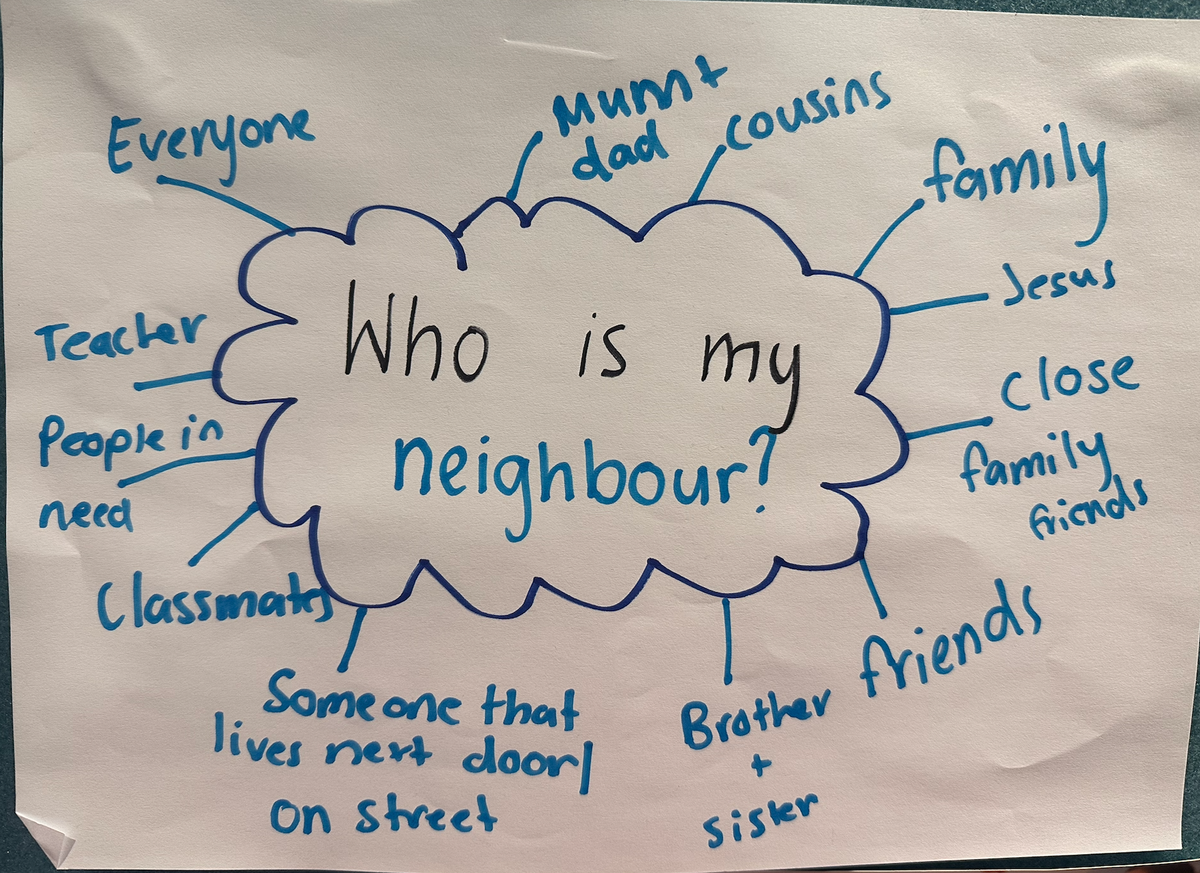 Who is my
neighbour?
Everyone
Mum +
dad
cousins
family
Jesus
close
family
friends
friends
Brother
+
sister
Someone that
lives next door/
on street
Classmates
People in
need
Teacher